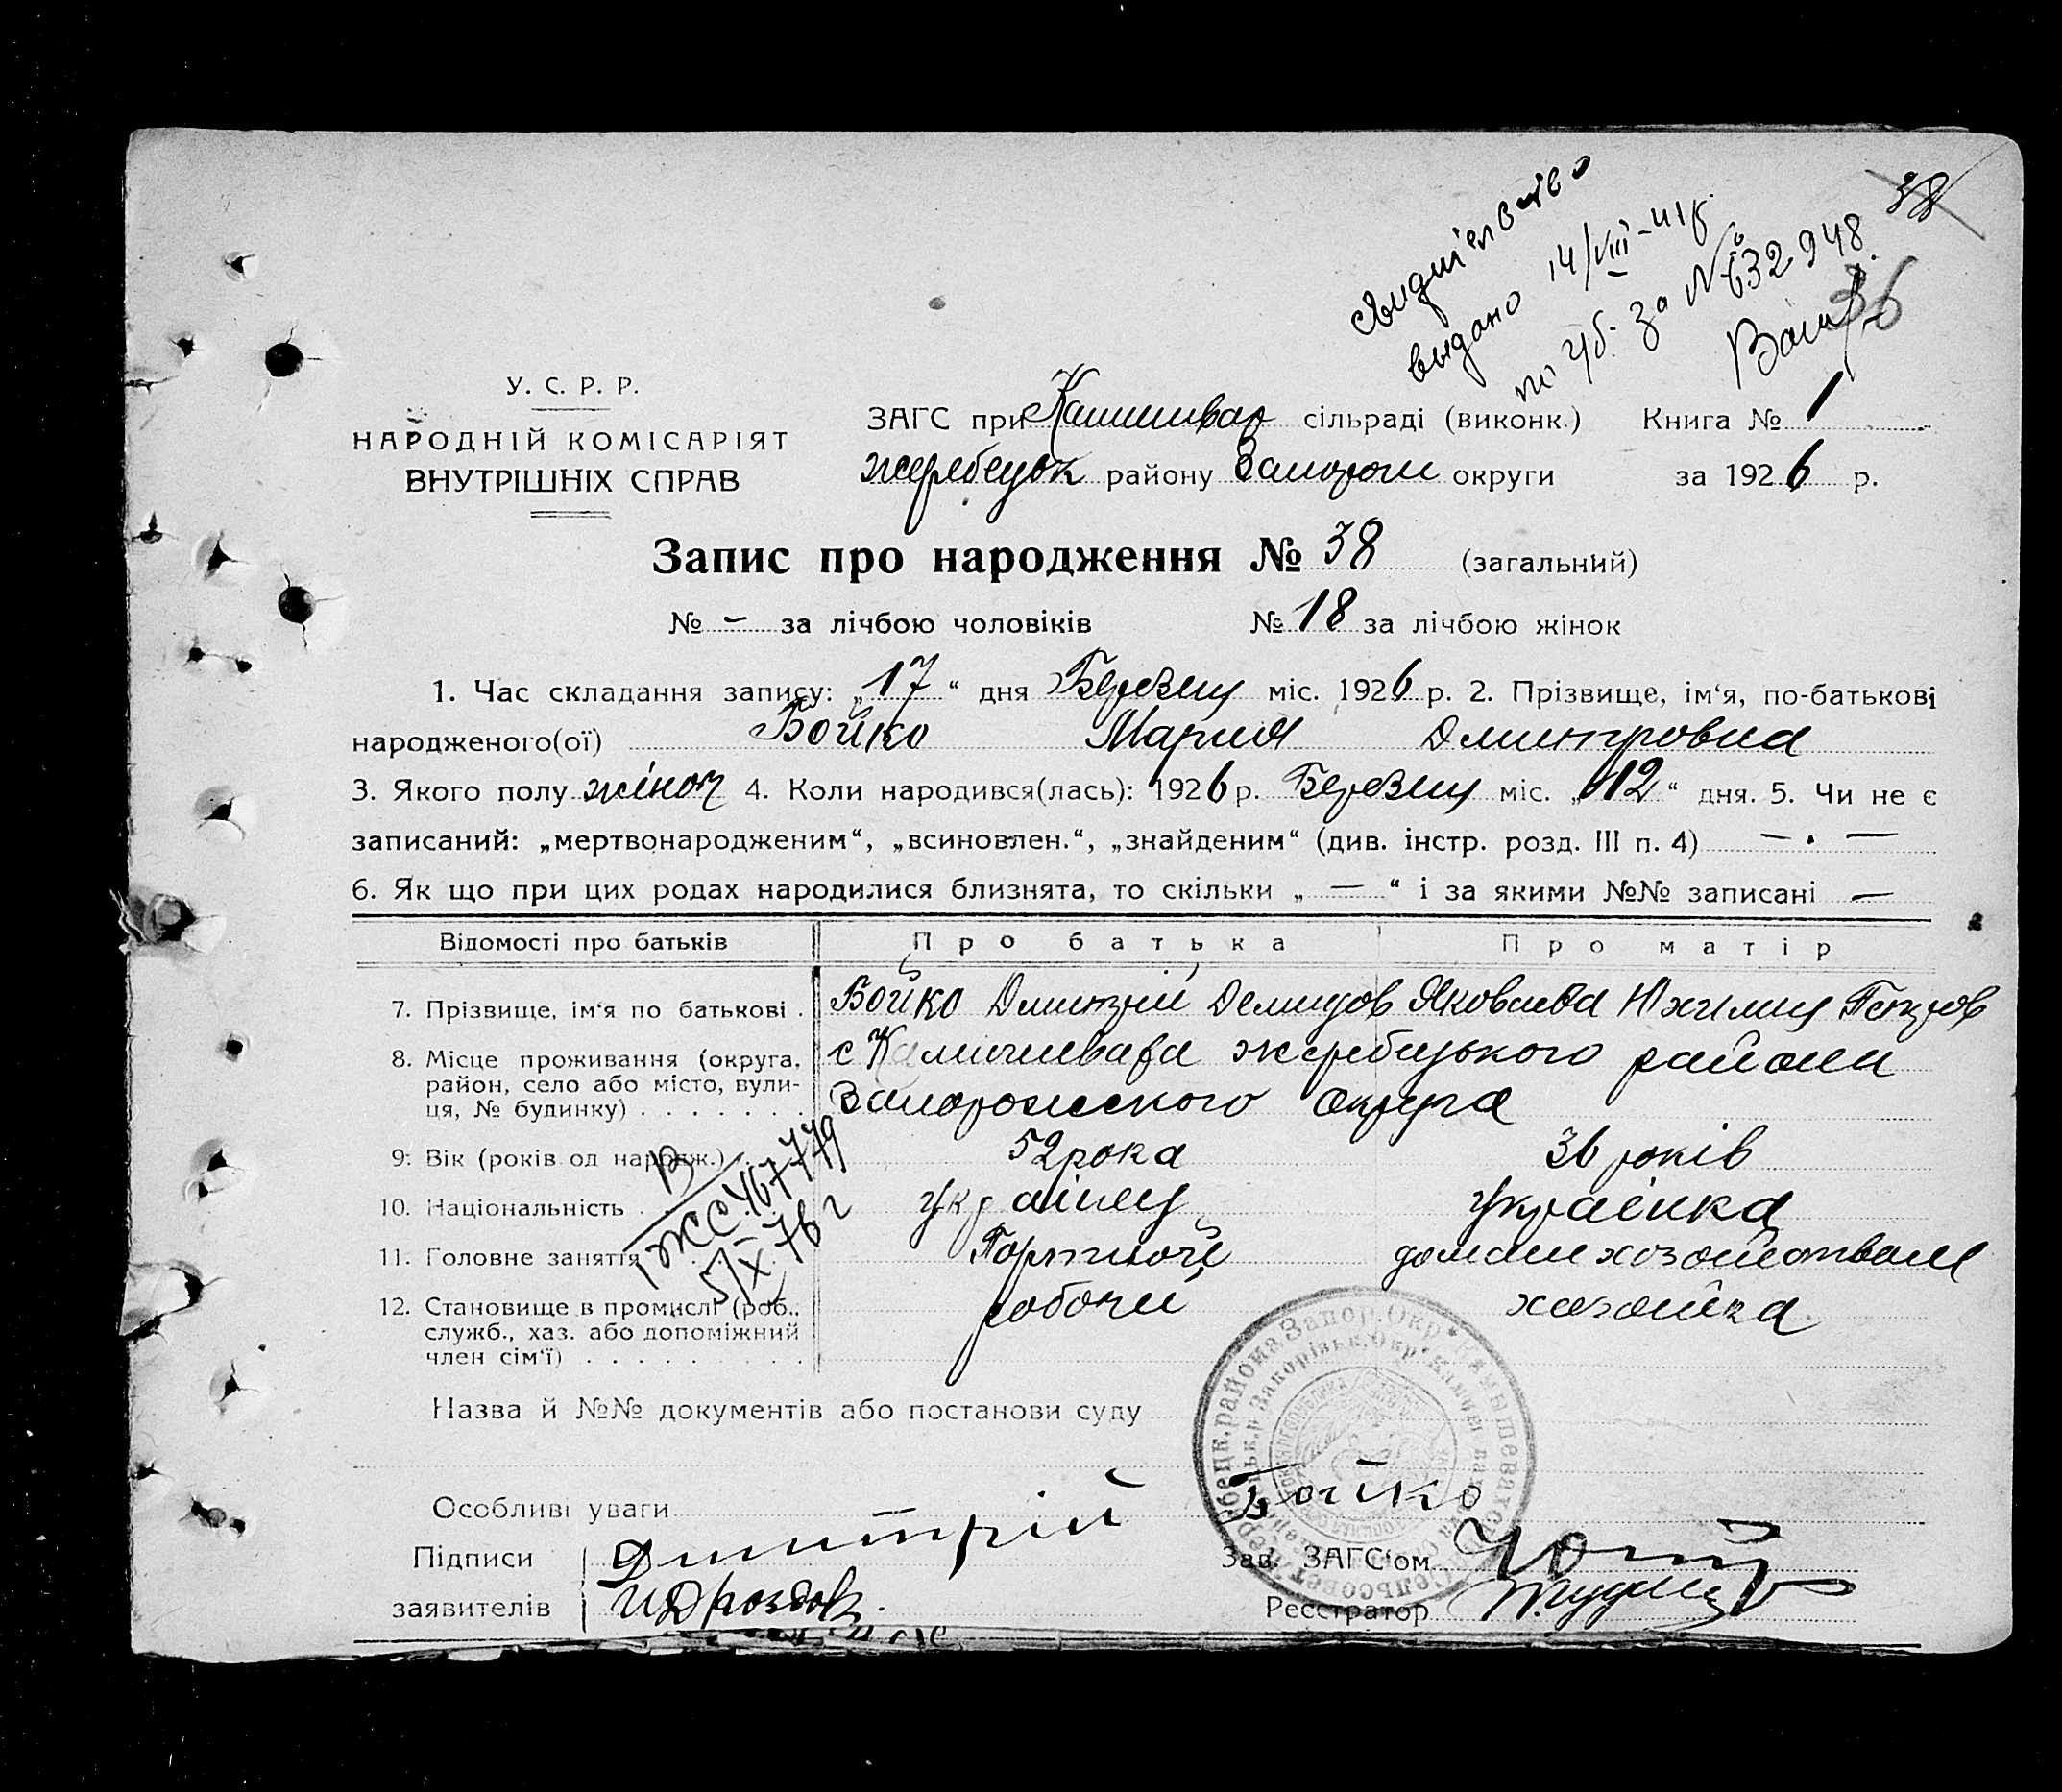 38
свидетельство
выдано 14/VIII-41г.
за № 632948.
36
У. С. Р. Р.
НАРОДНІЙ КОМІСАРІЯТ
ВНУТРІШНІХ СПРАВ
ЗАГС при Камишевах сільраді (виконк.) Книга № 1
жеребецьк району Запорож округи за 1926 р.
Запис про народження № 38 (загальний)
№ – за лічбою чоловіків № 18 за лічбою жінок
1. Час складання запису: „17“ дня Березня міс. 1926 р. 2. Прізвище, ім‘я, по-батькові
народженого(ої) Бойко Мария Дмитровна
3. Якого полу жіноч 4. Коли народився(лась): 1926 р. Березня міс. „12“ дня. 5. Чи не є
записаний: „мертвонародженим“, „всиновлен.“, „знайденим“ (див. інстр. розд. III п. 4) — . —
6. Як що при цих родах народилися близнята, то скільки „ — “ і за якими №№ записані —
Відомості про батьків Про батька Про матір
7. Прізвище, ім‘я по батькові . Бойко Дмитрій Демидов Яковлева Юхимия Петров
8. Місце проживання (округа, район, село або місто, вули-ця, № будинку) . . . . . . .
с Камишеваха жеребецького района
Запорожского округа
9. Вік (років од народж.) 52 рока 36 років
10. Національність українец українка
11. Головне заняття робочи
12. Становище в промислі (роб., служб., хаз. або допоміжний член сім‘ї) . . . . . . . . .
хазяйка
ЖС 467779
5/X 76 г
Назва й №№ документів або постанови суду
Особливі уваги
Підписи Дмитрій Бойко
заявителів И Дроздов
Зав. ЗАГС‘ом
Реєстратор